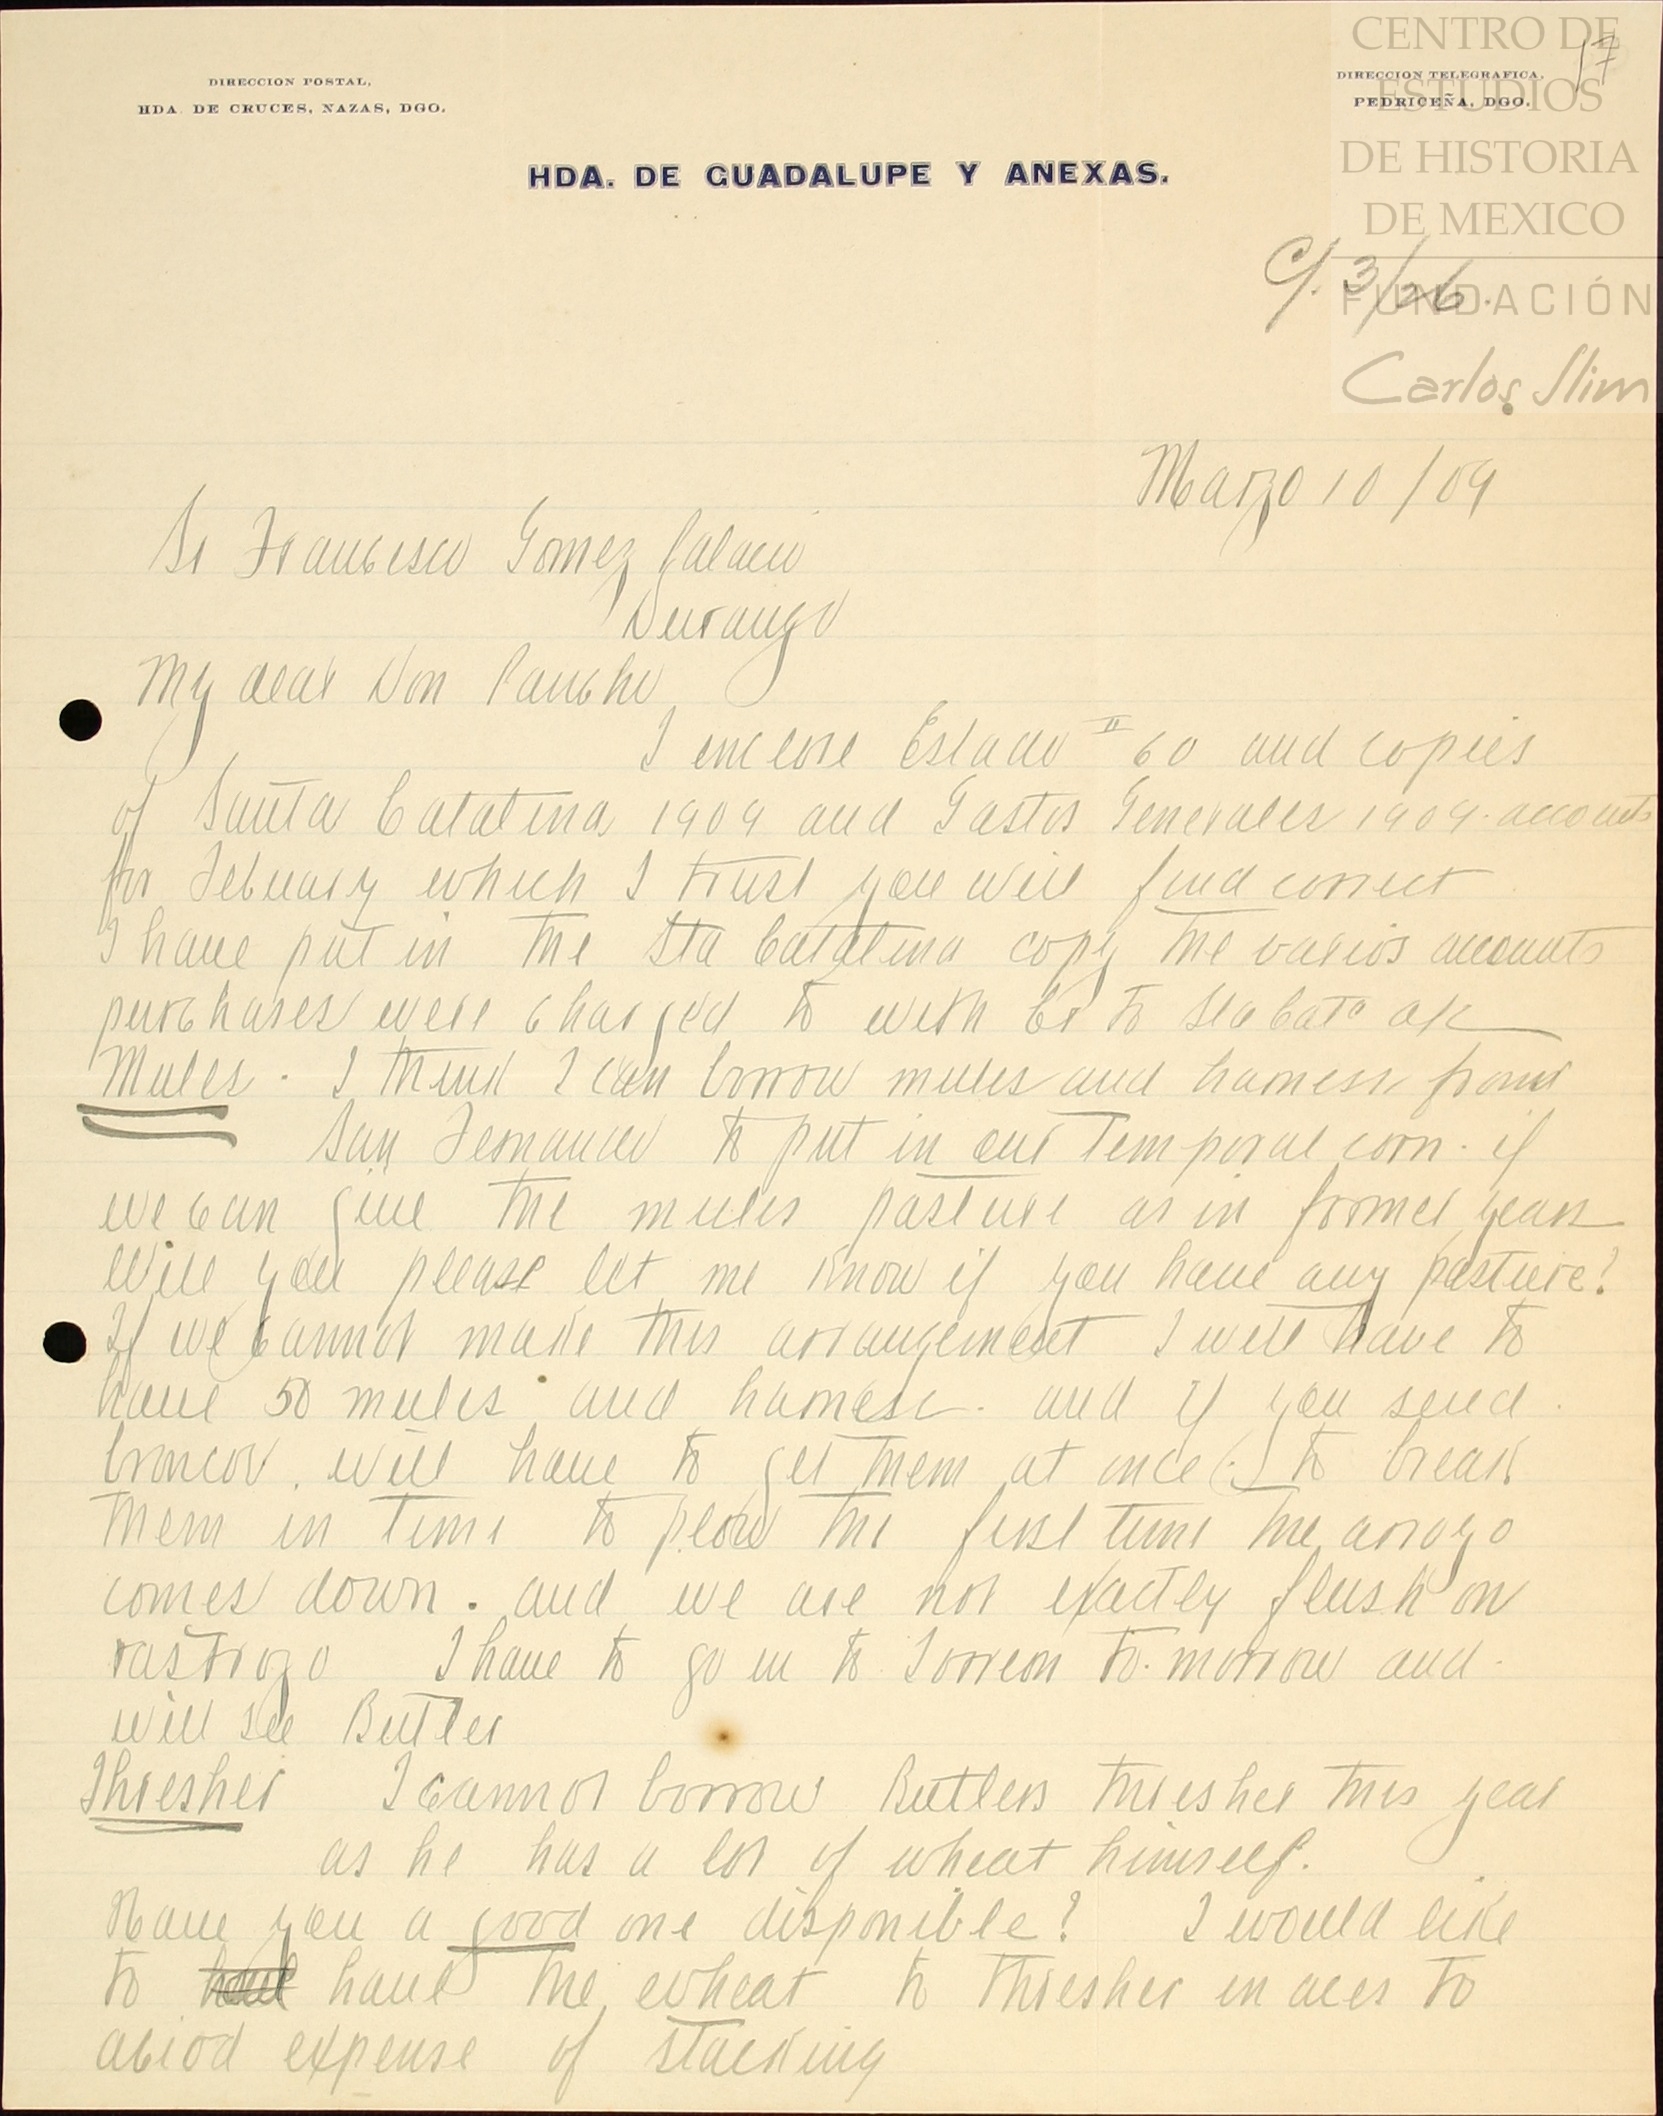 CENTRO DE
ESTUDIOS
DE HISTORIA
DE MEXICO
FUNDACIÓN
Carlos Slim
17
DIRECCION POSTAL,
HDA. DE CRUCES, NAZAS, DGO.
DIRECCION TELEGRAFICA,
PEDRICEÑA, DGO.
HDA. DE GUADALUPE Y ANEXAS.
C/. 3/26.
Marzo 10/09
Sr Francisco Gomez Palacio
Durango
My dear Don Pancho
I enclose Estado # 60 and copies
of Santa Catalina 1909 and Gastos Generales 1909. accounts
for February which I trust you will find correct
I have put in the Sta Catalina copy the varios accounts
purchases were charged to with Cr to Sta Cata a/c
Mules. I think I can borrow mules and harness from
San Fernando to put in our Temporal corn. if
we can give the mules pasture as in former years
Will you please let me know if you have any pasture?
If we cannot make this arrangement I will have to
have 50 mules and harness. and if you send
broncos. will have to get them at once (.) to break
them in time to plow the first time the arroyo
comes down. and we are not exactly flush on
rastrojo I have to go in to Torreon to-morrow and
will see Butler
Thresher I cannot borrow Butlers thresher this year
as he has a lot of wheat himself.
Have you a good one disponible? I would like
to haul the wheat to thresher in aces to
abiod expense of stacking